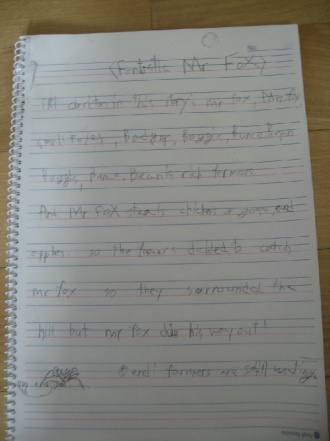 (Fantastic Mr Fox)
in this story. mr fox, Mrs fox
small Foxes, Badger, Boggis, Bunce, Bean
Boggis, Bunce, Bean is rich farmers.
And Mr Fox steals chickens or goose, and
apples so the farmers dicided to catch
mr fox so they surrounded the
hill but mr fox his way out!
end! farmers are still waiting.